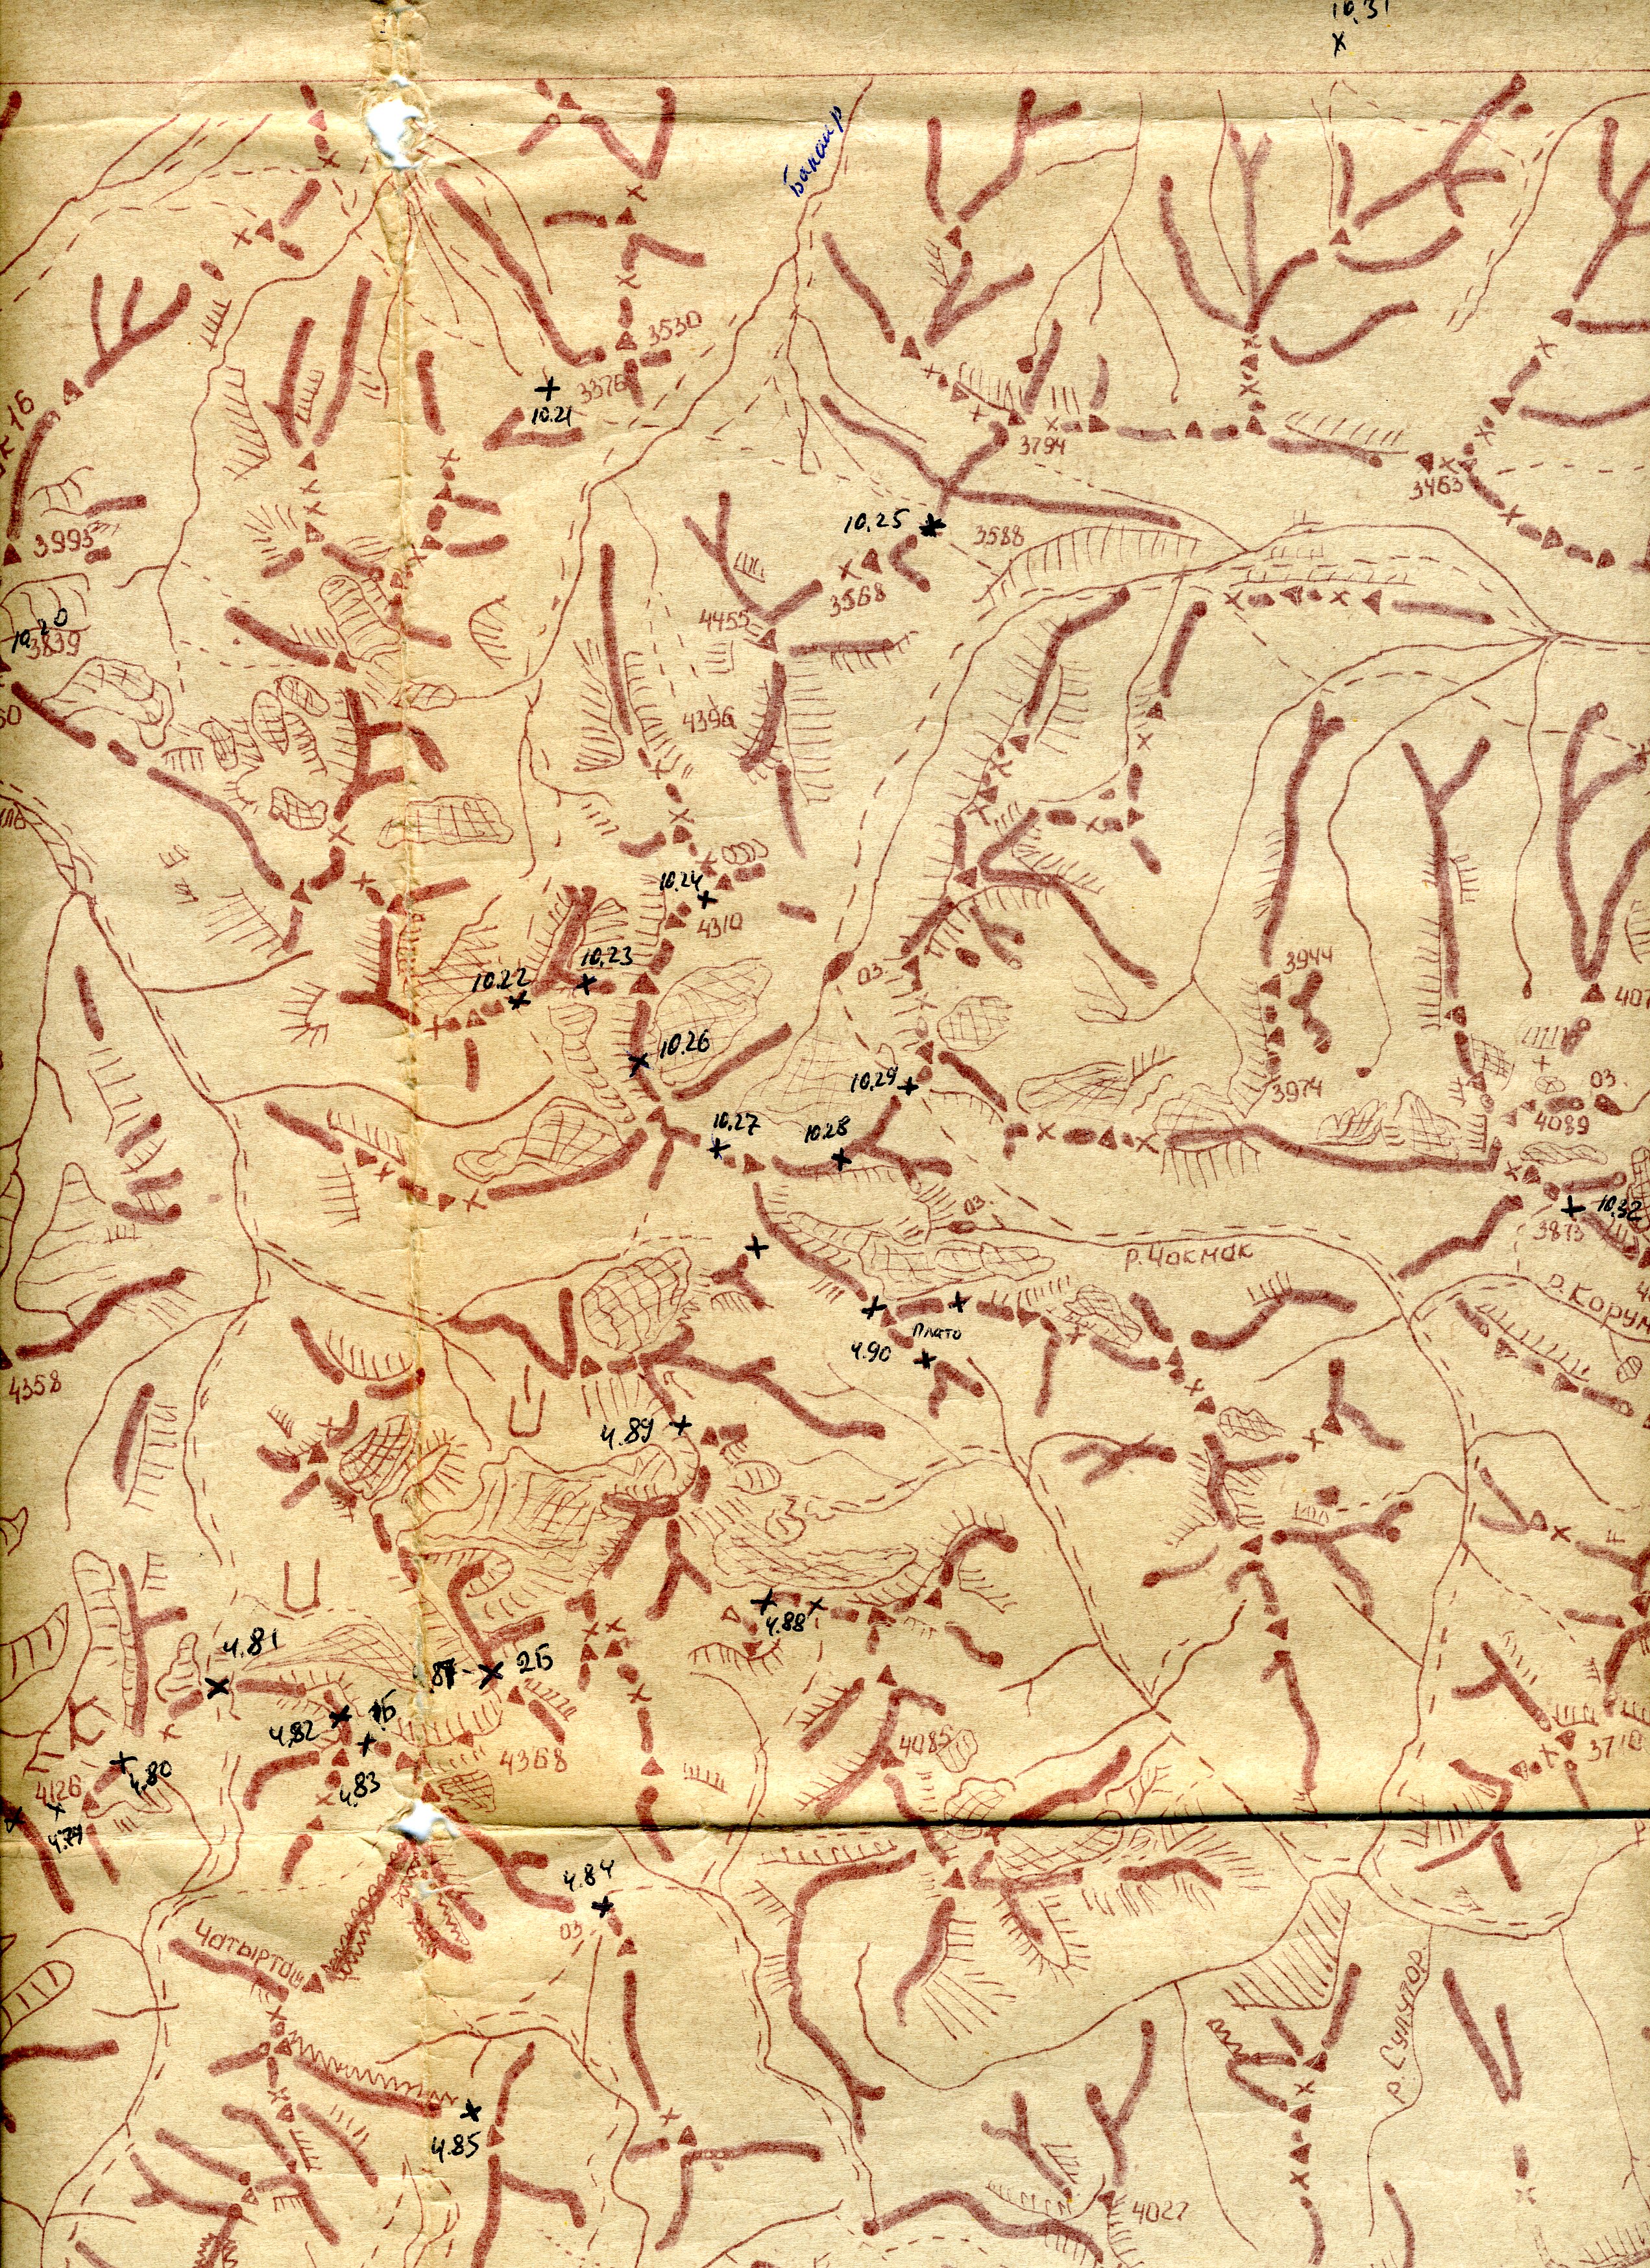 10.31
Бакаир
3530
3376
10.21
3794
3463
3993
10.25
3588
3568
10.20
3839
4455
4396
10.24
4310
10.23
10.22
ОЗ.
3944
10.26
10.29
3974
ОЗ.
4089
10.27
10.28
10.32
3873
ОЗ.
р. Чакмак
Плато
4.90
4358
4.89
4.88
4.81
87
2Б
4.82
1Б
4085
4368
4.83
3710
4126
4.80
4.79
4.84
ОЗ
Чатыртош
р. Сулутор
4.85
4027